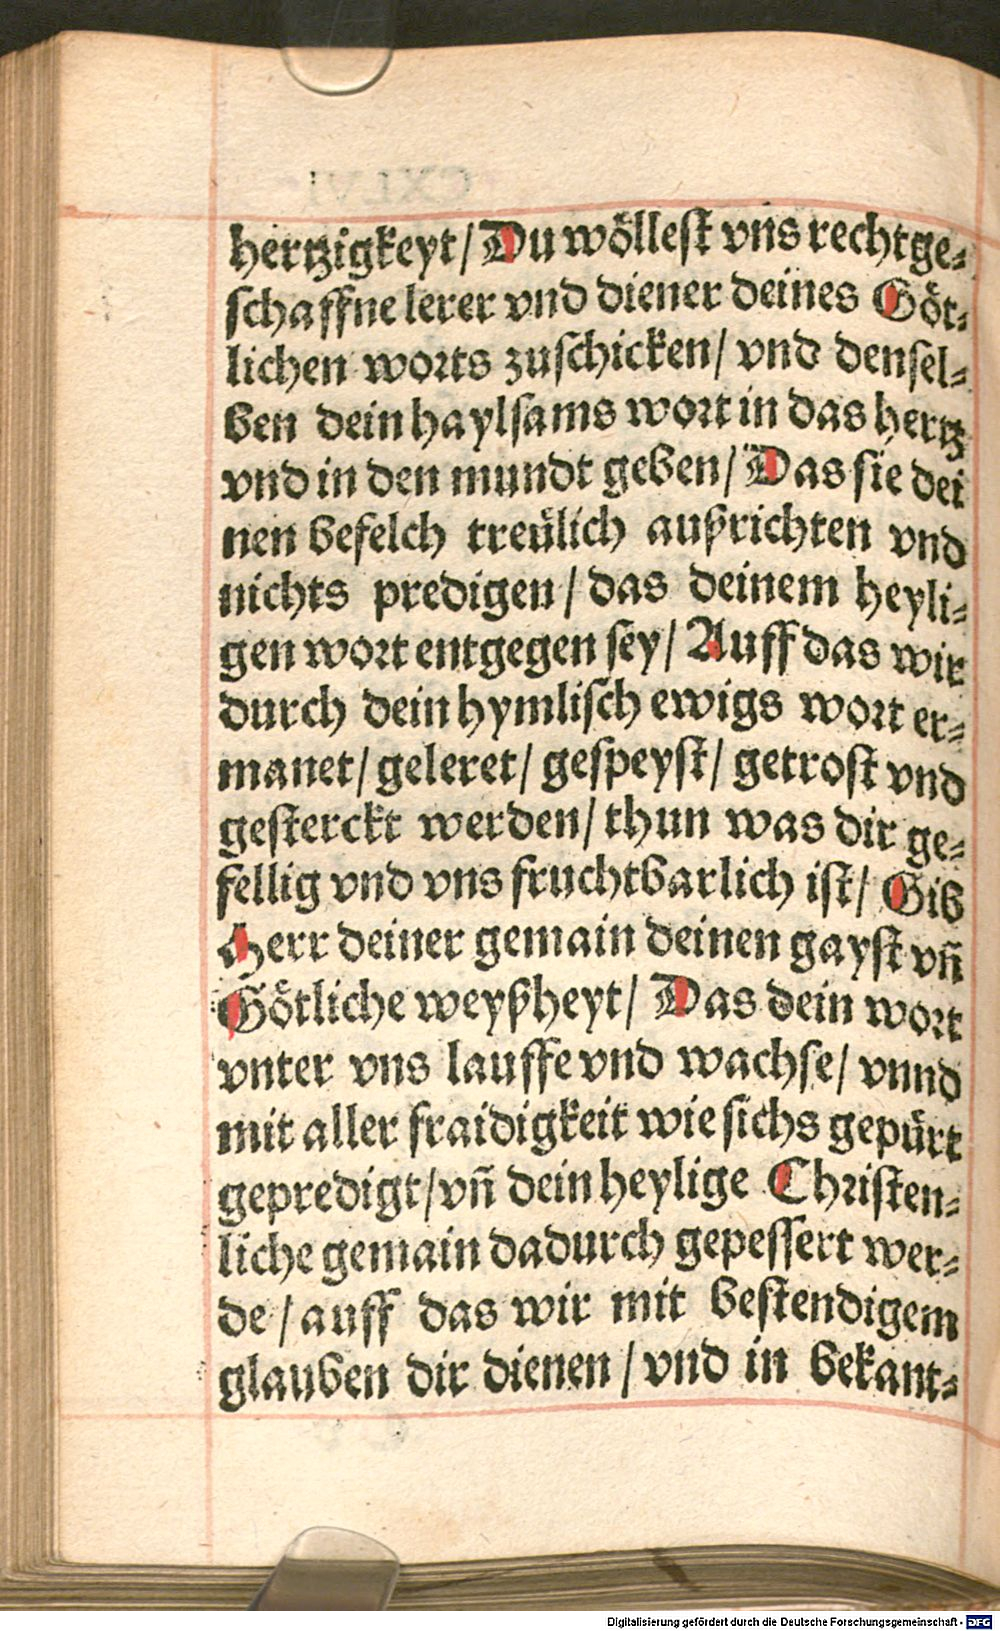 hertzigkeyt/ Du wöllest vns rechtge⸗
schaffne lerer vnd diener deines Göt⸗
lichen worts zuschicken/ vnd densel⸗
ben dein haylsams wort in das hertz
vnd in den mundt geben/ Das sie dei
nen befelch treülich außrichten vnd
nichts predigen/ das deinem heyli⸗
gen wort entgegen sey/ Auff das wir
durch dein hymlisch ewigs wort er⸗
manet/ geleret/ gespeyst/ getrost vnd
gesterckt werden/ thun was dir ge⸗
fellig vnd vns fruchtbarlich ist/ Gib
Herr deiner gemain deinen gayst vñ
Götliche weyßheyt/ Das dein wort
vnter vns lauffe vnd wachse/ vnnd
mit aller fraidigkeit wie sichs gepürt
gepredigt/ vñ dein heylige Christen⸗
liche gemain dadurch gepessert wer⸗
de/ auff das wir mit bestendigem
glauben dir dienen/ vnd in bekant⸗
Digitalisierung gefördert durch die Deutsche Forschungsgemeinschaft - DFG